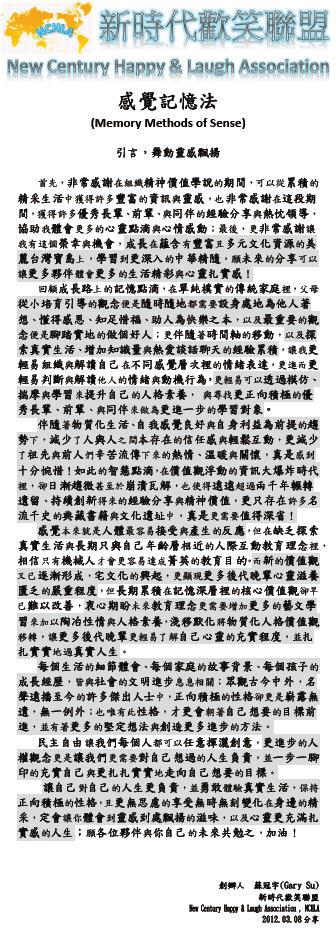 NCHLA
新時代歡笑聯盟
New Century Happy & Laugh Association
感覺記憶法
(Memory Methods of Sense)
引言，舞動靈感飄揚
首先，非常感謝在組織精神價值學說的期間，可以從累積的
精采生活中獲得許多豐富的資訊與靈感，也非常感謝在這段期
間，獲得許多優秀長輩、前輩、與同伴的經驗分享與熱忱領導，
協助我體會更多的心靈點滴與心情感動；最後，更非常感謝讓
我有這個榮幸與機會，成長在蘊含有豐富且多元文化資源的美
麗台灣寶島上，學習到更深入的中華精隨，願未來的分享可以
讓更多夥伴體會更多的生活精彩與心靈扎實感！
回顧成長路上的記憶點滴，在單純樸實的傳統家裡，父母
從小培育引導的觀念便是隨時隨地都需要設身處地為他人著
想、懂得感恩、知足惜福、助人為快樂之本，以及最重要的觀
念便是腳踏實地的做個好人；更伴隨著時間軸的移動，以及探
索真實生活、增加知識量與熱愛談話聊天的經驗累積，讓我更
輕易組織與解讀自己在不同感覺層次裡的情緒表達，更進而更
輕易判斷與解讀他人的情緒與動機行為，更輕易可以透過模仿、
揣摩與學習來提升自己的人格素養，與尋找更正向積極的優
秀長輩、前輩、與同伴來做為更進一步的學習對象。
伴隨著物質化生活、自我感覺良好與自身利益為前提的趨
勢下，減少了人與人之間本存在的信任感與輕鬆互動，更減少
了祖先與前人們辛苦流傳下來的熱情、溫暖與關懷，真是感到
十分惋惜！如此的智慧點滴，在價值觀浮動的資訊大爆炸時代
裡，卻日漸趨微甚至於崩潰瓦解，也使得遠遠超過兩千年輾轉
遺留、持續創新得來的經驗分享與精神價值，更只存在許多名
流千史的典藏書籍與文化遺址中，真是更需要值得深省！
感覺本來就是人體最容易接受與產生的反應，但在缺乏探索
真實生活與長期只與自己年齡層相近的人際互動教育理念裡，
相信只有機械人才會更容易達成菁英的教育目的。而新的價值觀
又已逐漸形成，宅文化的興起，更顯現更多後代晚輩心靈滋養
匱乏的嚴重程度，但長期累積在記憶深層裡的核心價值觀卻早
已難以改善，衷心期盼未來教育理念更需要增加更多的藝文學
習來加以陶冶性情與人格素養，淺移默化將物質化人格價值觀
移轉，讓更多後代晚輩更輕易了解自己心靈的充實程度，並扎
扎實實地過真實人生。
每個生活的細節體會、每個家庭的故事背景、每個孩子的
成長經歷，皆與社會的文明進步息息相關；眾觀古今中外，名
聲遠播至今的許多傑出人士中，正向積極的性格卻更是嶄露無
遺，無一例外；也唯有此性格，才更會朝著自己想要的目標前
進，並有著更多的堅定想法與創造更多進步的方法。
民主自由讓我們每個人都可以任意揮灑創意，更進步的人
權觀念更是讓我們更需要對自己想過的人生負責，並一步一腳
印的充實自己與更扎扎實實地走向自己想要的目標。
讓自己對自己的人生更負責，並勇敢體驗真實生活，保持
正向積極的性格，且更無思慮的享受無時無刻變化在身邊的精
采，定會讓你體會到靈感到處飄揚的滋味，以及心靈更充滿扎
實感的人生；願各位夥伴與你自己的未來共勉之，加油！
創辦人 蘇冠宇(Gary Su)
新時代歡笑聯盟
New Century Happy & Laugh Association , NCHLA
2012.03.08分享